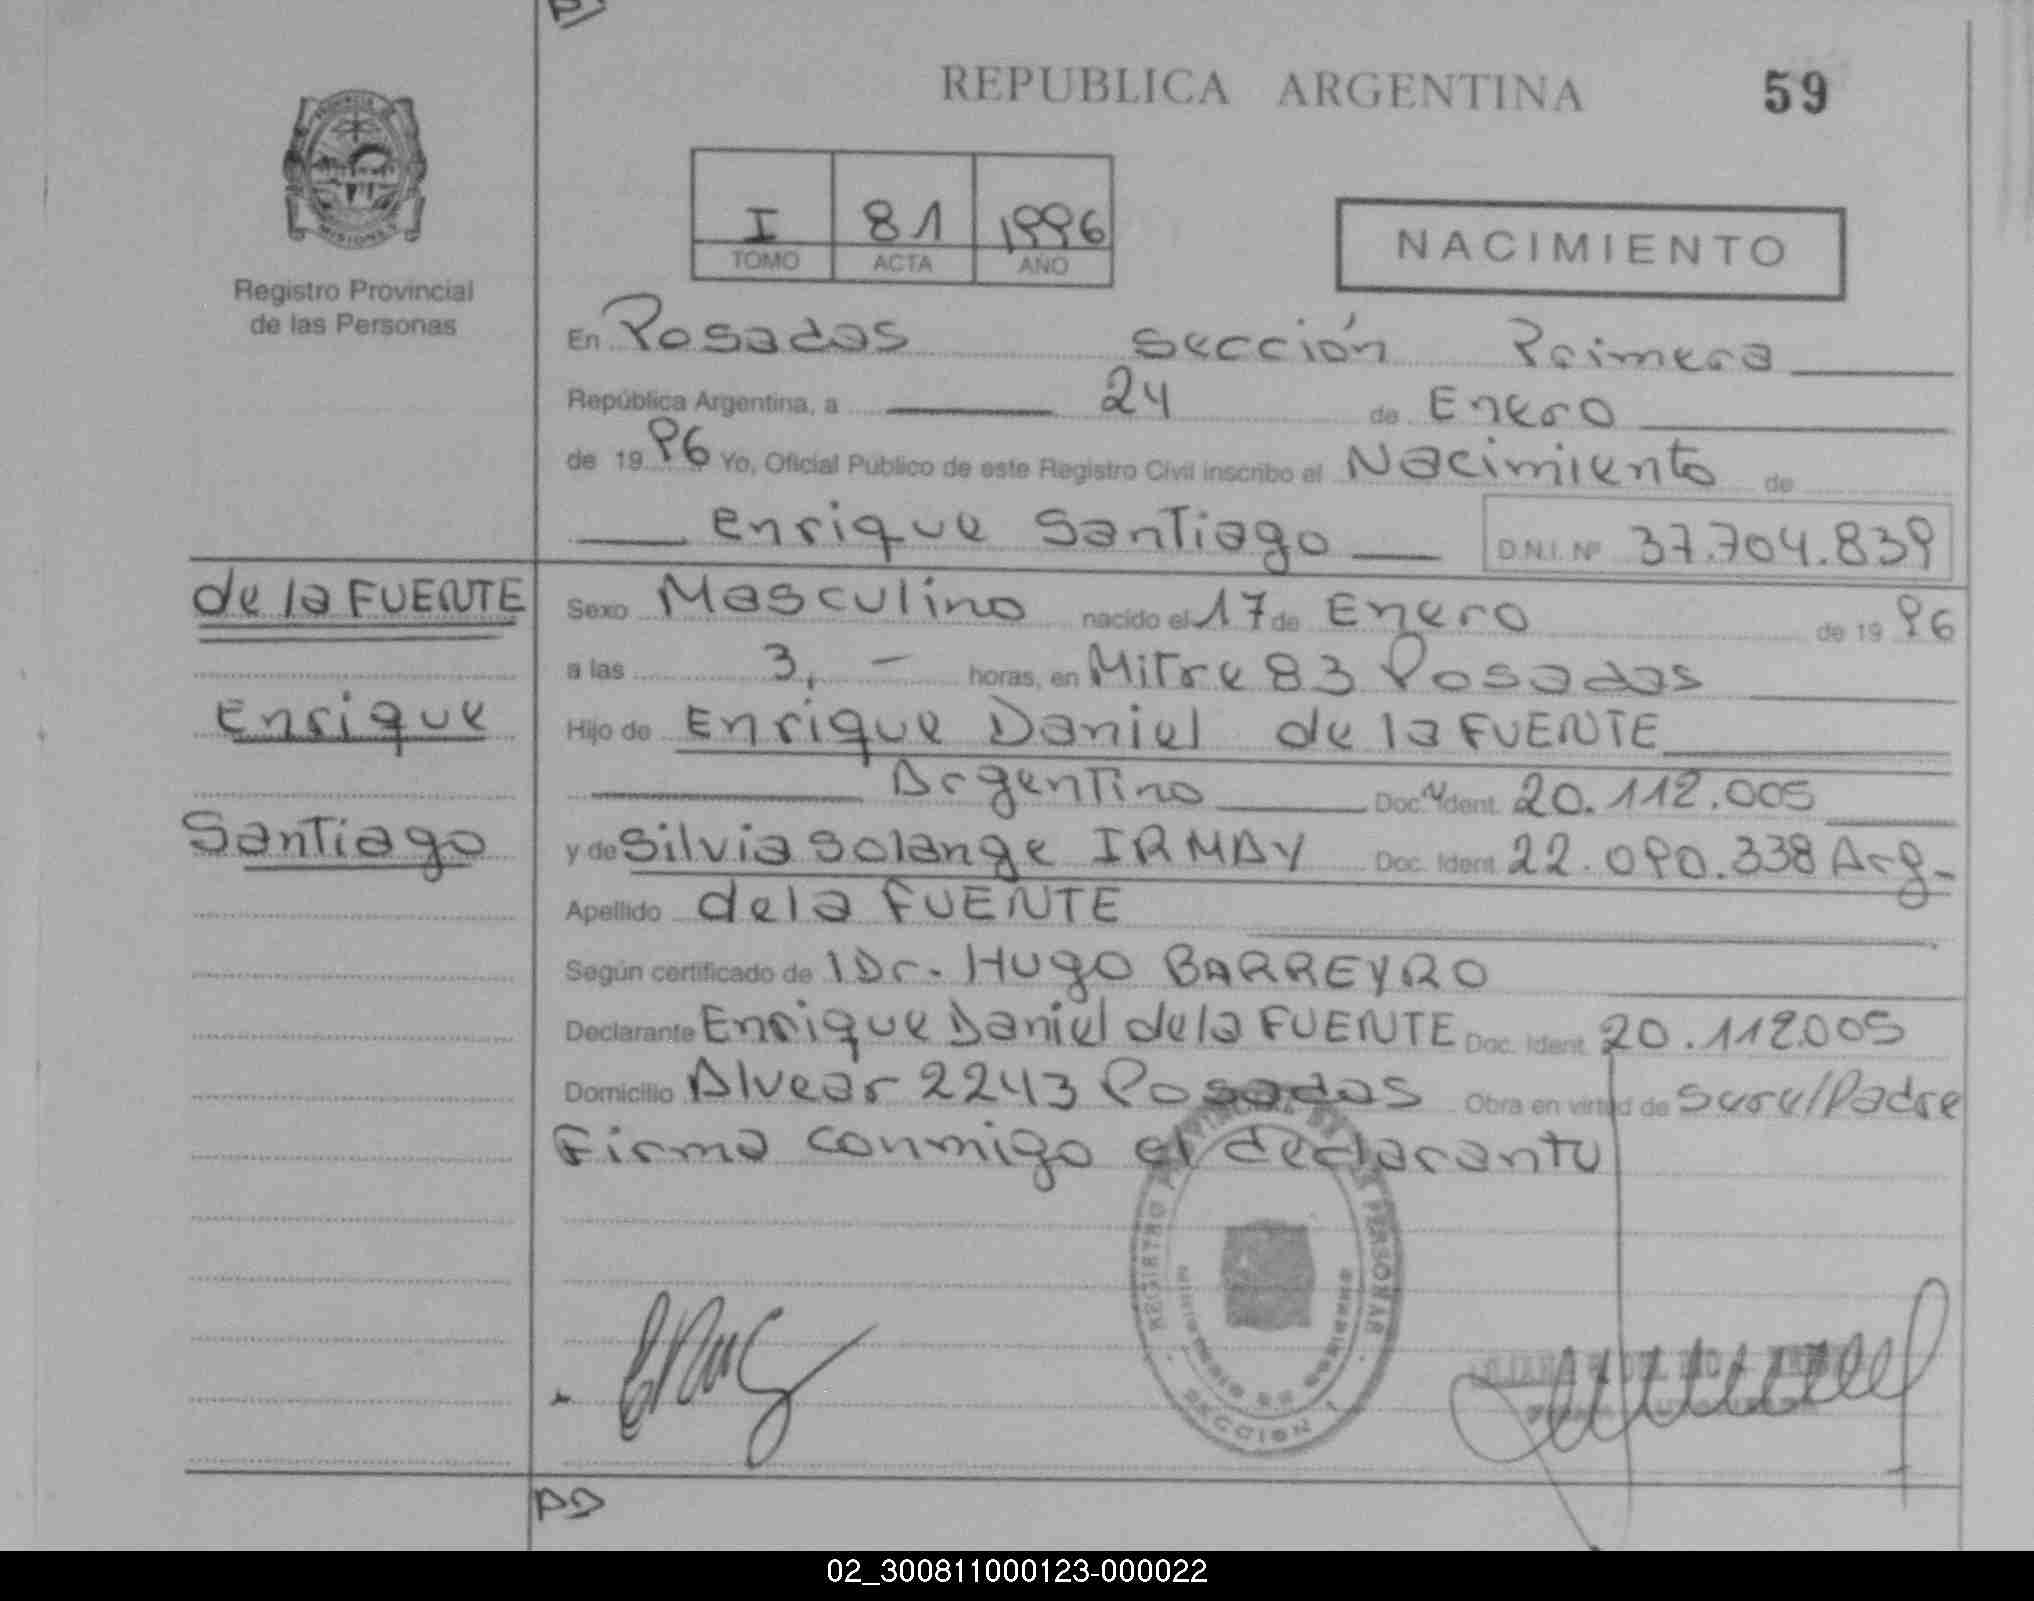 REPUBLICA ARGENTINA 59
I 81 1996
TOMO ACTA AÑO
NACIMIENTO
MISIONES
Registro Provincial
de las Personas
En Posadas Sección Primera
República Argentina, a 24 de Enero
de 19 96 Yo, Oficial Público de este Registro Civil inscribo el Nacimiento de
Enrique Santiago D.N.I. Nº 37.704.839
de la FUENTE
Enrique
Santiago
Sexo Masculino nacido el 17 de Enero de 19 96
a las 3,- horas, en Mitre 83 Posadas
Hijo de Enrique Daniel de la FUENTE
Argentino Doc. Ident. 20.112.005
y de Silvia Solange IRMAY Doc. Ident. 22.090.338 Arg-
Apellido de la FUENTE
Según certificado de Dr. Hugo BARREYRO
Declarante Enrique Daniel de la FUENTE Doc. Ident. 20.112.005
Domicilio Alvear 2243 Posadas Obra en virtud de /Padre
Firma conmigo el declarante
REGISTRO PROVINCIAL DE LAS PERSONAS
SECCION 1
02_300811000123-000022